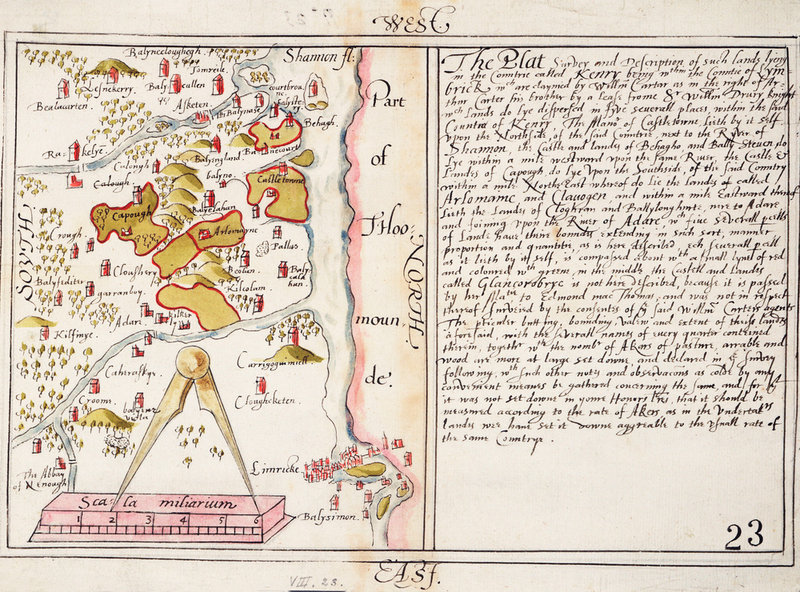 WEST
Balyneeloughegh.
Shamon fl:
Lesnekerry.
Tomreile.
Baly
callen
Bealacarten.
Asketen.
Balynash.
Part
Behagh.
Ra-
kelye.
Culengh
Balyngland
Balanecourt
of
Calough
balyno.
Castletonne
Capough
Bayelahan
Thoo-
SOVTH
NORTH
rough.
Arlomayne
Pallas
Cloughery
Bcolun.
Balycalahan.
Balyfediter
garranboy.
Kilcolam
moun-
Adare
Kilfinye.
Carrigoguinniell
Caheraffye
de.
Clougheketen.
Crome
The Abbay
of Nenough
Limricke
Scala miliarium
1 2 3 4 5 6
Balysimon.
EAST.
VIII. 23.
The Plat Survey and Description of such lands lyeng
in the Countrie called Kenry being wthin the Countie of Lym-
brick wch are claymed by Willm Carter as in the right of Ar-
thur Carter his brother by a lease from Sr Willm Drury knight
wch lands do lye dispersed in five severall places, within the said
Countrie of Kenry. The Mano of Castletonne lieth by it self
upon the Northside of the said Countrie, next to the River of
Shamon, the Castle and landes of Behagho, and Bally Steven do
lye within a mile westward upon the same River, the Castle &
Landes of Capough do lye upon the Southside, of the said Contry
within a mile North East whereof do lie the landes of called
Arlomame, and Clavogen, and within a mile Eastward thereof
lieth the Landes of Coghran and Ballyloughnite nere to Adare
and joining upon the River of Adare wch five severall plats
of Landes have their boundes extending in such sort, manner
proportion and quantitie, as is here described ech severall plat
as it lieth by it self, is compased about wth a small lyne of red
and coloured wth greene, in the middle the Castell and landes
called Glancorobrye is not here described, because it is passed
by her Matie to Edmond mac Thomas, and was not in respect
thereof surveied by the consentes of ye said Willm Carters agents
The particuler butting, bounding valew and extent of theise landes
aforesaid, with the severall names of every quarter conteined
therein, together wth the nomber of Akers of pasture, arrable and
wood are more at large set downe and declared in ye survey
following, wth such other notes and observacons as cold by any
convenient meanes be gathered concerning the same, and for yt
it was not set downe in your Honors lres, that it should be
measured according to the rate of Akers as in the Undertakers
landes wee have set it downe aggreable to the usuall rate of
the same Countrye.
23